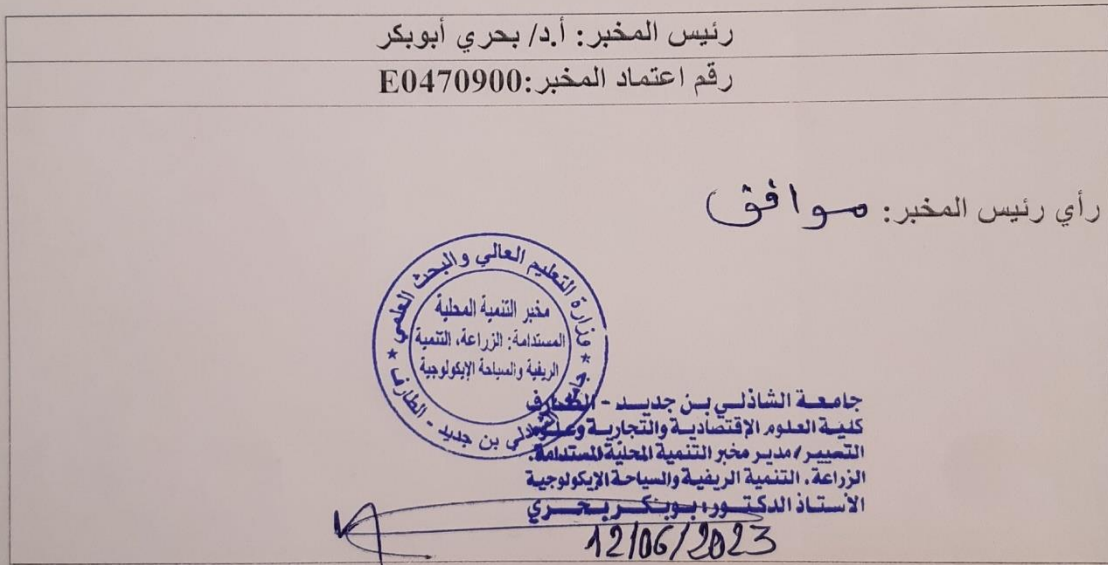 رئيس المخبر: أ.د/ بحري أبوبكر
رقم اعتماد المخبر:E0470900
رأي رئيس المخبر: موافق
وزارة التعليم العالي والبحث العلمي
مخبر التنمية المحلية
المستدامة: الزراعة، التنمية
الريفية والسياحة الإيكولوجية
جامعة الشاذلي بن جديد - الطارف
جامعة الشاذلي بن جديد - الطارف
كلية العلوم الإقتصادية والتجارية وعلوم
التسيير/مدير مخبر التنمية المحلية المستدامة.
الزراعة، التنمية الريفية والسياحة الإيكولوجية
الأستاذ الدكتور: بوبكر بحري
12/06/2023